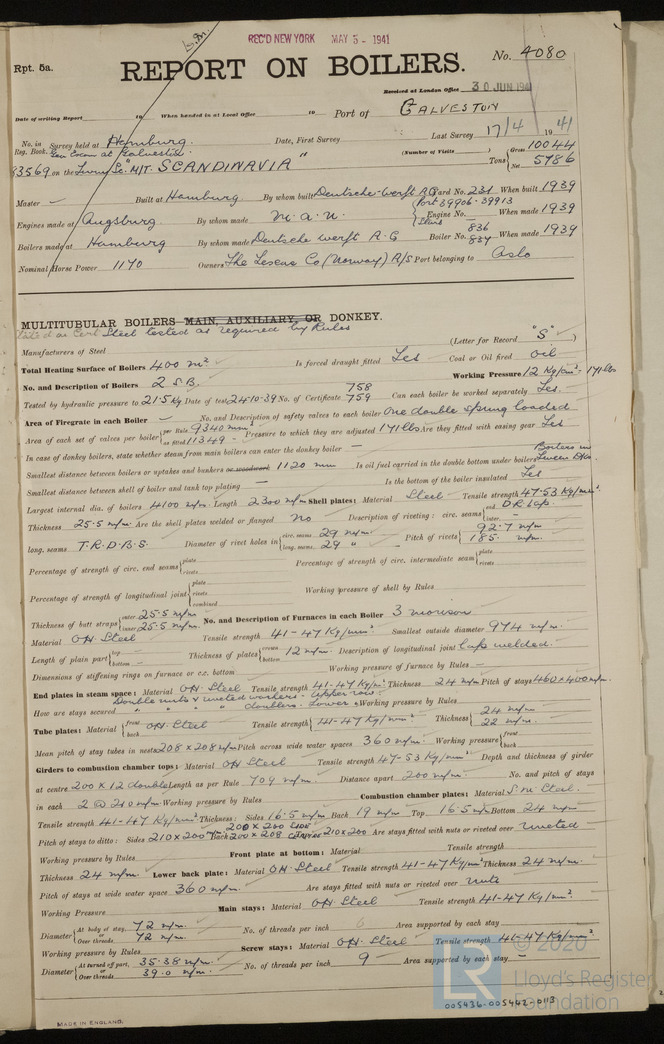 REC'D NEW YORK MAY 5 - 1941
Rpt. 5a.
No. 4080
REPORT ON BOILERS.
Received at London Office 30 JUN 194
Date of writing Report to When handed in at Local Office to Port of GALVESTON
No. in Reg. Book. Survey held at Hamburg. Date, First Survey Last Survey 17/4 1941
(Number of Visits )
83569 on the M/T. "SCANDINAVIA" Tons Gross 10044 Net 5786
Master — Built at Hamburg. By whom built Deutsche Werft A.G Yard No. 231 When built 1939
Port 39906-39913
Engines made at Augsburg. By whom made M.A.N. Engine No. When made 1939
Boilers made at Hamburg By whom made Deutsche Werft A.G Boiler No. 836 837 When made 1939
Nominal Horse Power 1170 Owners Co (Norway) A/S Port belonging to Oslo
MULTITUBULAR BOILERS MAIN, AUXILIARY, OR DONKEY.
Steel tested as required by Rules
Manufacturers of Steel (Letter for Record "S" )
Total Heating Surface of Boilers 400 m² Is forced draught fitted Yes Coal or Oil fired oil
No. and Description of Boilers 2 S.B. Working Pressure 12 Kg/cm² = 171 lbs
Tested by hydraulic pressure to 21.5 Kg Date of test 24-10-39 No. of Certificate 758 759 Can each boiler be worked separately Yes.
Area of Firegrate in each Boiler — No. and Description of safety valves to each boiler One double spring loaded
Area of each set of valves per boiler per Rule 9340 mm² as fitted 11349 - Pressure to which they are adjusted 171 lbs Are they fitted with easing gear Yes
In case of donkey boilers, state whether steam from main boilers can enter the donkey boiler —
Smallest distance between boilers or uptakes and bunkers or woodwork 1120 mm Is oil fuel carried in the double bottom under boilers Boilers in Tween Dks.
Smallest distance between shell of boiler and tank top plating — Is the bottom of the boiler insulated Yes
Largest internal dia. of boilers 4100 m/m. Length 2300 m/m Shell plates: Material Steel Tensile strength 47-53 Kg/mm²
Thickness 25.5 m/m. Are the shell plates welded or flanged No Description of riveting: circ. seams end D.R. Lap. inter. -
long. seams T.R.D.B.S. Diameter of rivet holes in circ. seams 29 m/m. long. seams 29 " Pitch of rivets 92.7 m/m 185. m/m.
Percentage of strength of circ. end seams plate rivets Percentage of strength of circ. intermediate seam plate rivets
Percentage of strength of longitudinal joint plate rivets combined Working pressure of shell by Rules
Thickness of butt straps outer 25.5 m/m inner 25.5 m/m. No. and Description of Furnaces in each Boiler 3 morison
Material OH. Steel Tensile strength 41-47 Kg/mm² Smallest outside diameter 974 m/m.
Length of plain part top - bottom - Thickness of plates crown bottom 12 m/m. Description of longitudinal joint Lap welded.
Dimensions of stiffening rings on furnace or c.c. bottom — Working pressure of furnace by Rules —
End plates in steam space: Material OH Steel Tensile strength 41-47 Kg/m² Thickness 24 m/m Pitch of stays 460 x 400 m/m.
How are stays secured Double nuts & riveted washers - Upper row. " " " doublers. Lower " Working pressure by Rules
Tube plates: Material front back OH. Steel Tensile strength 41-47 Kg/mm² Thickness 24 m/m 22 m/m.
Mean pitch of stay tubes in nests 208 x 208 m/m Pitch across wide water spaces 360 m/m. Working pressure front back
Girders to combustion chamber tops: Material OH Steel Tensile strength 47-53 Kg/mm² Depth and thickness of girder
at centre 200 x 12 double Length as per Rule 709 m/m. Distance apart 200 m/m. No. and pitch of stays
in each 2 @ 210 m/m. Working pressure by Rules Combustion chamber plates: Material S.M. Steel.
Tensile strength 41-47 Kg/mm² Thickness: Sides 16.5 m/m. Back 19 m/m Top 16.5 m/m Bottom 24 m/m
Pitch of stays to ditto: Sides 210 x 200 Back 200 x 200 SIDE 200 x 208 CENTRE Top 210 x 200 Are stays fitted with nuts or riveted over riveted
Working pressure by Rules Front plate at bottom: Material Tensile strength
Thickness 24 m/m. Lower back plate: Material OH. Steel Tensile strength 41-47 Kg/mm² Thickness 24 m/m.
Pitch of stays at wide water space 360 m/m. Are stays fitted with nuts or riveted over nuts
Working Pressure Main stays: Material OH Steel Tensile strength 41-47 Kg/mm²
Diameter At body of stay, 72 m/m. or Over threads 72 m/m. No. of threads per inch 6 Area supported by each stay
Working pressure by Rules Screw stays: Material OH. Steel Tensile strength 41-47 Kg/mm².
Diameter At turned off part, 35.38 m/m. or Over threads 39.0 m/m. No. of threads per inch 9 Area supported by each stay —
© 2020
LR
Lloyd's Register
Foundation
005436-005442-0113
MADE IN ENGLAND.